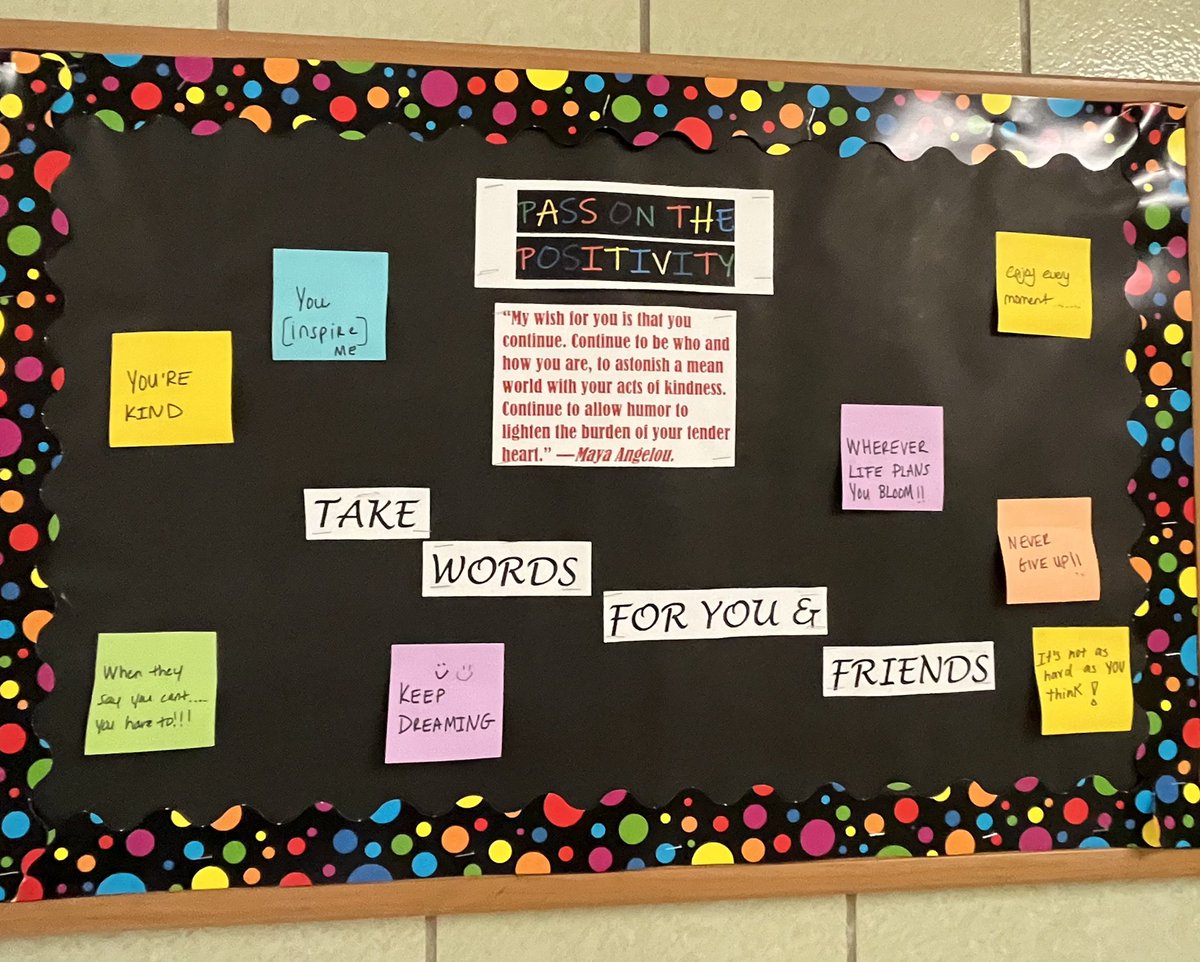 PASS ON THE
POSITIVITY
"My wish for you is that you
continue. Continue to be who and
how you are, to astonish a mean
world with your acts of kindness.
Continue to allow humor to
lighten the burden of your tender
heart." —Maya Angelou.
You
[INSPIRE]
ME
YOU'RE
KIND
Enjoy every
moment ......
WHEREVER
LIFE PLANS
You BLOOM!!
TAKE
WORDS
FOR YOU &
FRIENDS
NEVER
GIVE UP!!
When they
say you cant....
you have to!!!
KEEP
DREAMING
It's not as
hard as YOU
think!